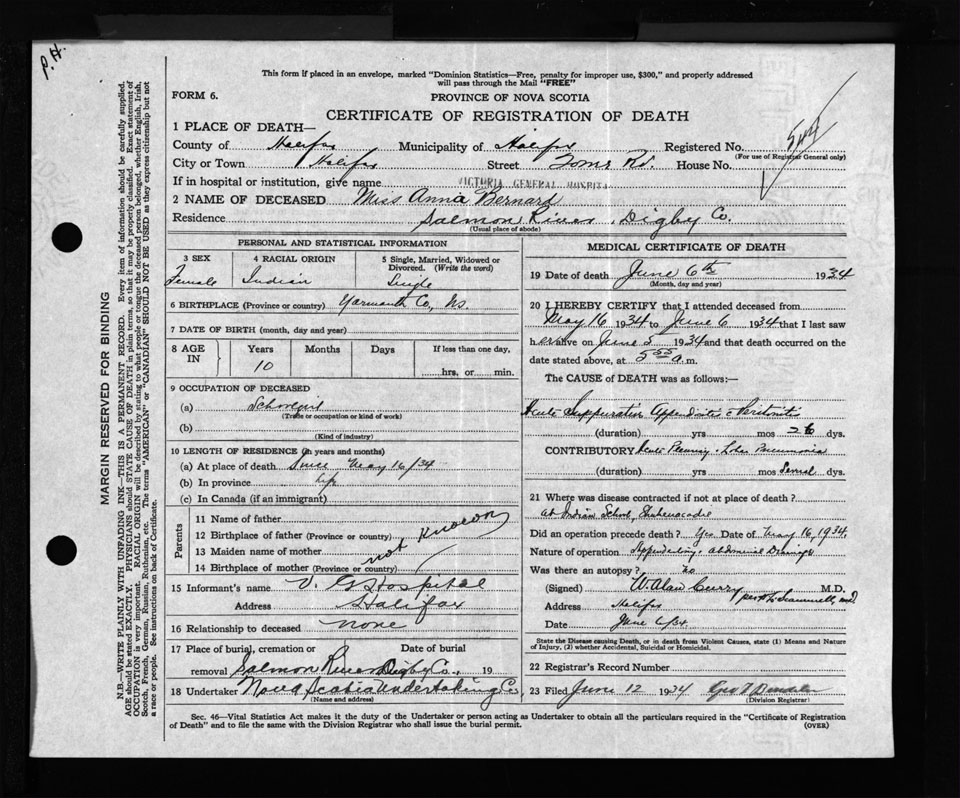 P.H.
This form if placed in an envelope, marked "Dominion Statistics—Free, penalty for improper use, $300," and properly addressed
will pass through the Mail "FREE"
FORM 6.
PROVINCE OF NOVA SCOTIA
CERTIFICATE OF REGISTRATION OF DEATH
1 PLACE OF DEATH—
County of Halifax Municipality of Halifax Registered No.
(For use of Registrar General only)
City or Town Halifax Street Rd. House No.
If in hospital or institution, give name VICTORIA GENERAL HOSPITAL
2 NAME OF DECEASED Miss Anna Bernard
Residence Salmon River, Digby Co.
(Usual place of abode)
PERSONAL AND STATISTICAL INFORMATION
3 SEX
Female
4 RACIAL ORIGIN
Indian
5 Single, Married, Widowed or
Divorced. (Write the word)
Single
6 BIRTHPLACE (Province or country) Yarmouth Co, Ns.
7 DATE OF BIRTH (month, day and year)
8 AGE IN
Years Months Days If less than one day,
10
hrs. or min.
9 OCCUPATION OF DECEASED
(a) Schoolgirl
(Trade or occupation or kind of work)
(b)
(Kind of industry)
10 LENGTH OF RESIDENCE (in years and months)
(a) At place of death Since May 16/34
(b) In province life
(c) In Canada (if an immigrant)
Parents
11 Name of father
12 Birthplace of father (Province or country)
13 Maiden name of mother
14 Birthplace of mother (Province or country)
not known
15 Informant's name V. G. Hospital
Address Halifax
16 Relationship to deceased none
17 Place of burial, cremation or Date of burial
removal Salmon River Digby Co., 19
18 Undertaker Nova Scotia Undertaking Co,
(Name and address)
MEDICAL CERTIFICATE OF DEATH
19 Date of death June 6th 1934
(Month, day and year)
20 I HEREBY CERTIFY that I attended deceased from
May 16 1934 to June 6 1934 that I last saw
her alive on June 5 1934 and that death occurred on the
date stated above, at 5 55 a.m.
The CAUSE of DEATH was as follows:—
Acute Suppurative Appendicitis c Peritonitis
(duration) yrs mos 26 dys.
CONTRIBUTORY Acute Pleurisy - Lobar Pneumonia
(duration) yrs mos Several dys.
21 Where was disease contracted if not at place of death?
at Indian School, Shubenacadie
Did an operation precede death? Yes Date of May 16, 1934.
Nature of operation Appendectomy, abdominal Drainage
Was there an autopsy? no
(Signed) W. Alan Curry M.D.
Address Halifax
Date June 6/34
State the Disease causing Death, or in death from Violent Causes, state (1) Means and Nature
of Injury, (2) whether Accidental, Suicidal or Homicidal.
22 Registrar's Record Number
23 Filed June 12 1934
(Division Registrar)
Sec. 46—Vital Statistics Act makes it the duty of the Undertaker or person acting as Undertaker to obtain all the particulars required in the "Certificate of Registration
of Death" and to file the same with the Division Registrar who shall issue the burial permit.
(OVER)
MARGIN RESERVED FOR BINDING
N.B.—WRITE PLAINLY WITH UNFADING INK—THIS IS A PERMANENT RECORD. Every item of information should be carefully supplied.
AGE should be stated EXACTLY. PHYSICIANS should STATE CAUSE OF DEATH in plain terms, so that it may be properly classified. Exact statement of
OCCUPATION is very important. RACIAL ORIGIN will be described by stating to what people or tongue the deceased person belonged, whether English, Irish,
Scotch, French, German, Russian, Ruthenian, etc. The terms "AMERICAN" or "CANADIAN" SHOULD NOT BE USED as they express citizenship but not
a race or people. See instructions on back of Certificate.